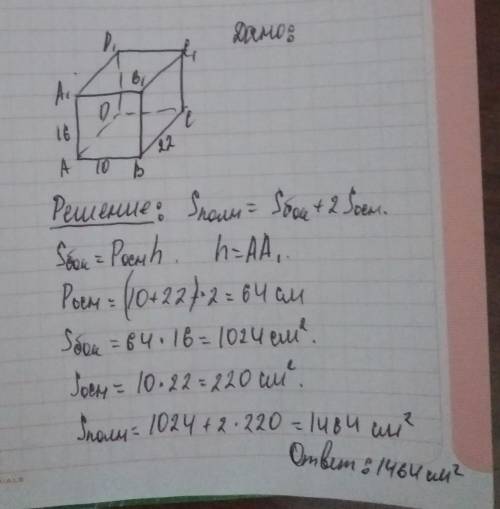 Дано:
D₁ C₁
A₁ B₁
16 D C
A 10 B 22
Решение: Sполн = Sбок + 2Sосн.
Sбок = Pосн h. h = AA₁.
Pосн = (10+22)·2 = 64 см
Sбок = 64 · 16 = 1024 см².
Sосн = 10 · 22 = 220 см².
Sполн = 1024 + 2 · 220 = 1464 см²
Ответ: 1464 см²